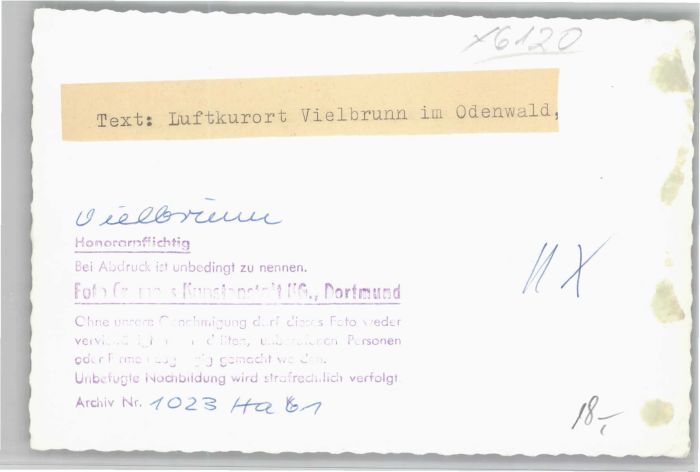 x6120
Text: Luftkurort Vielbrunn im Odenwald,
Vielbrunn
Honorarpflichtig
Bei Abdruck ist unbedingt zu nennen.
Foto Kunstanstalt KG., Dortmund
Ohne unsere Genehmigung darf dieses Foto weder
unberufenen Personen
oder Firmen gemacht werden.
Unbefugte Nachbildung wird strafrechtlich verfolgt.
Archiv Nr. 1023 Ha 61
11 X
18,-